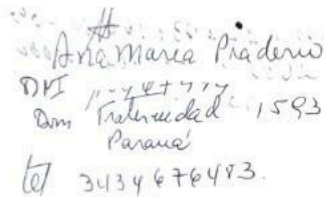 Ana Maria Piaderio
DNI
Dom Fraternidad 1593
Paraná
tel 3434676483.